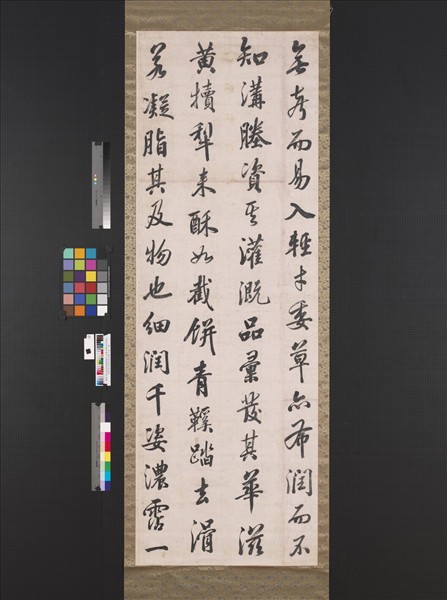 而易入輕委草亦布潤而不
知溝塍資其灌漑品彙發其華滋
黄犢犁来酥如截餅青鞵踏去滑
若凝脂其及物也細潤千姿濃霑一